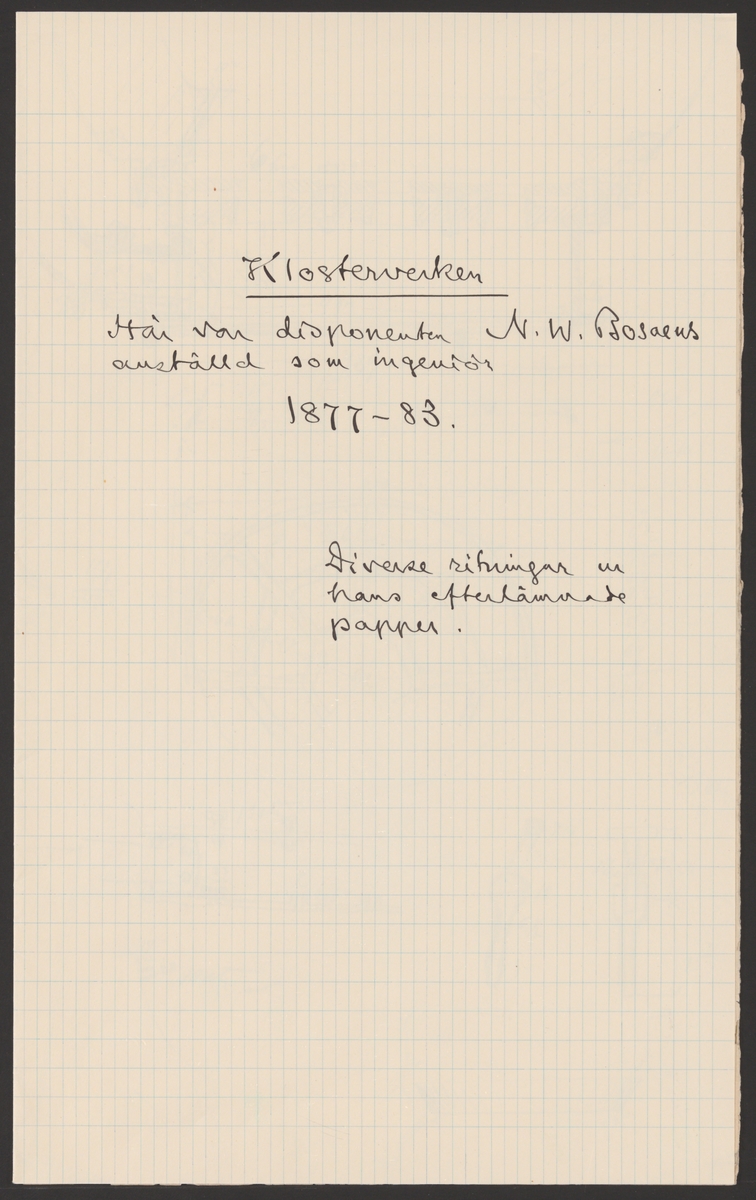 Klosterverken
Här var disponenten N. W. Bosaeus
anställd som ingeniör
1877-83.
Diverse ritningar ur
hans efterlämnade
papper.